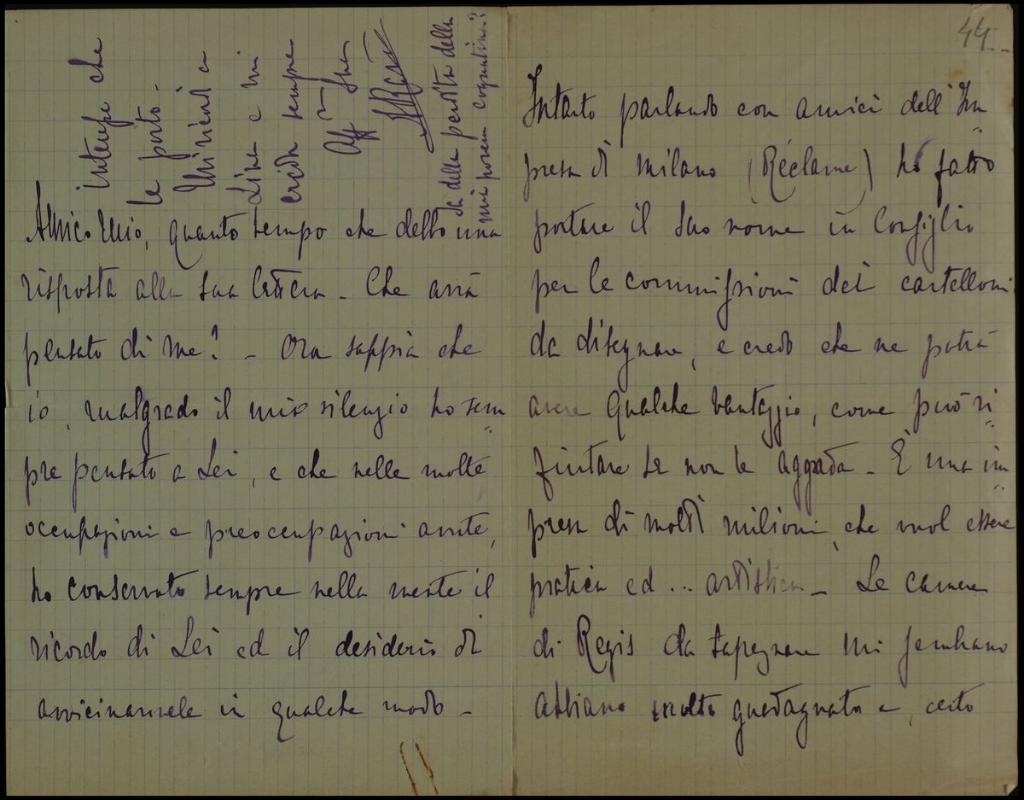 Amico mio, quanto tempo che debbo una
risposta alla sua lettera - Che avrà
pensato di me? - Ora sappia che
io, malgrado il mio silenzio ho sem
pre pensato a Lei, e che nelle molte
occupazioni e preoccupazioni avute,
ho conservato sempre nella mente il
ricordo di Lei ed il desiderio di
avvicinarmele in qualche modo -
44-
Intanto parlando con amici dell'Im
presa di Milano (Réclame) ho fatto
portare il suo nome in Consiglio
per le commissioni dei cartelloni
da disegnare, e credo che ne potrà
avere qualche vantaggio, come può ri
fiutare se non le aggrada - È una im
presa di molti milioni, che vuol essere
pratica ed ... artistica - Le camere
di Regis da tapezzare mi sembrano
abbiano molto guadagnato e, certo
interesse che
le porto -
Mi scriva a
Lina e mi
creda sempre
Aff mo Suo
Sa della perdita della
mia povera cognatina?